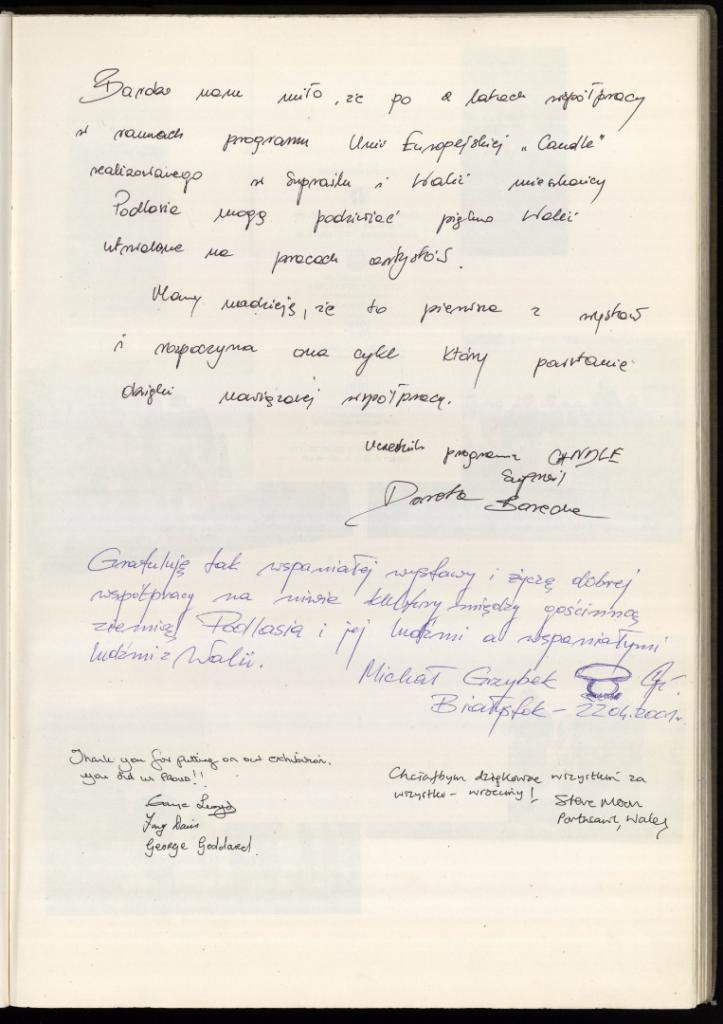 Bardzo nam miło, że po 2 latach współpracy
w ramach programu Unii Europejskiej „Candle"
realizowanego w Supraślu i Walii mieszkańcy
Podlasia mogą podziwiać piękno Walii
utrwalone na pracach artystów.
Mamy nadzieję, że to pierwsza z wystaw
i rozpoczyna ona cykl który powstanie
dzięki nawiązanej współpracy.
Uczestnik programu CANDLE
Supraśl
Dorota
Gratuluję tak wspaniałej wystawy i życzę dobrej
współpracy na niwie kultury między gościnną
ziemią Podlasia i jej ludźmi a wspaniałymi
ludźmi z Walii.
Michał Grzybek
Białystok - 22.04.2001r.
Thank you for putting on our exhibition.
you did us Proud!!
George Goddard.
Chciałbym dziękować wszystkim za
wszystko - wrócimy!
Steve
Wales